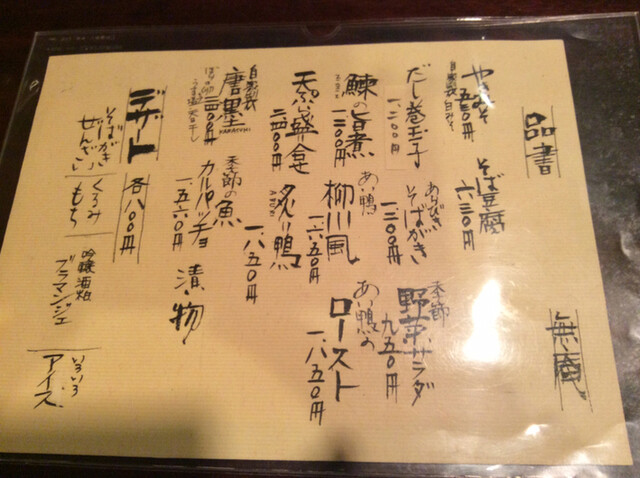 品書
無庵
やきみそ
五五〇円
自家製白みそ
そば豆腐
六三〇円
だし巻玉子
一、二〇〇円
あらびき
そばがき
一、三〇〇円
季節
野草サラダ
九五〇円
鰊の旨煮
一、三〇〇円
あい鴨
柳川風
一、六五〇円
あい鴨の
ロースト
一、八五〇円
天ぷら盛合
二、四〇〇円
炙り鴨
一、八五〇円
自家製
唐墨
KARASUMI
二、四〇〇円
季節の魚
カルパッチョ
一、五六〇円
漬物
デザート
各八〇〇円
そばがき
ぜんざい
くるみ
もち
吟醸酒粕
ブラマンジェ
いろいろ
アイス